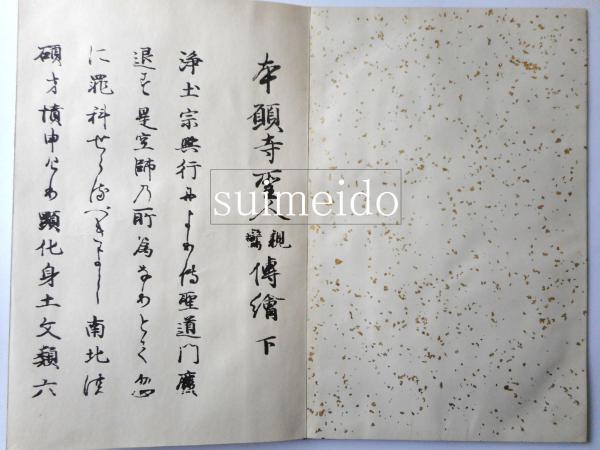 本願寺聖人親鸞傳繪 下
浄土宗興行によりて聖道門廢
退す是空師乃所為なりとて忽
に罪科せらるへきよし南北
碩才憤申けり顕化身土文類六
suimeido